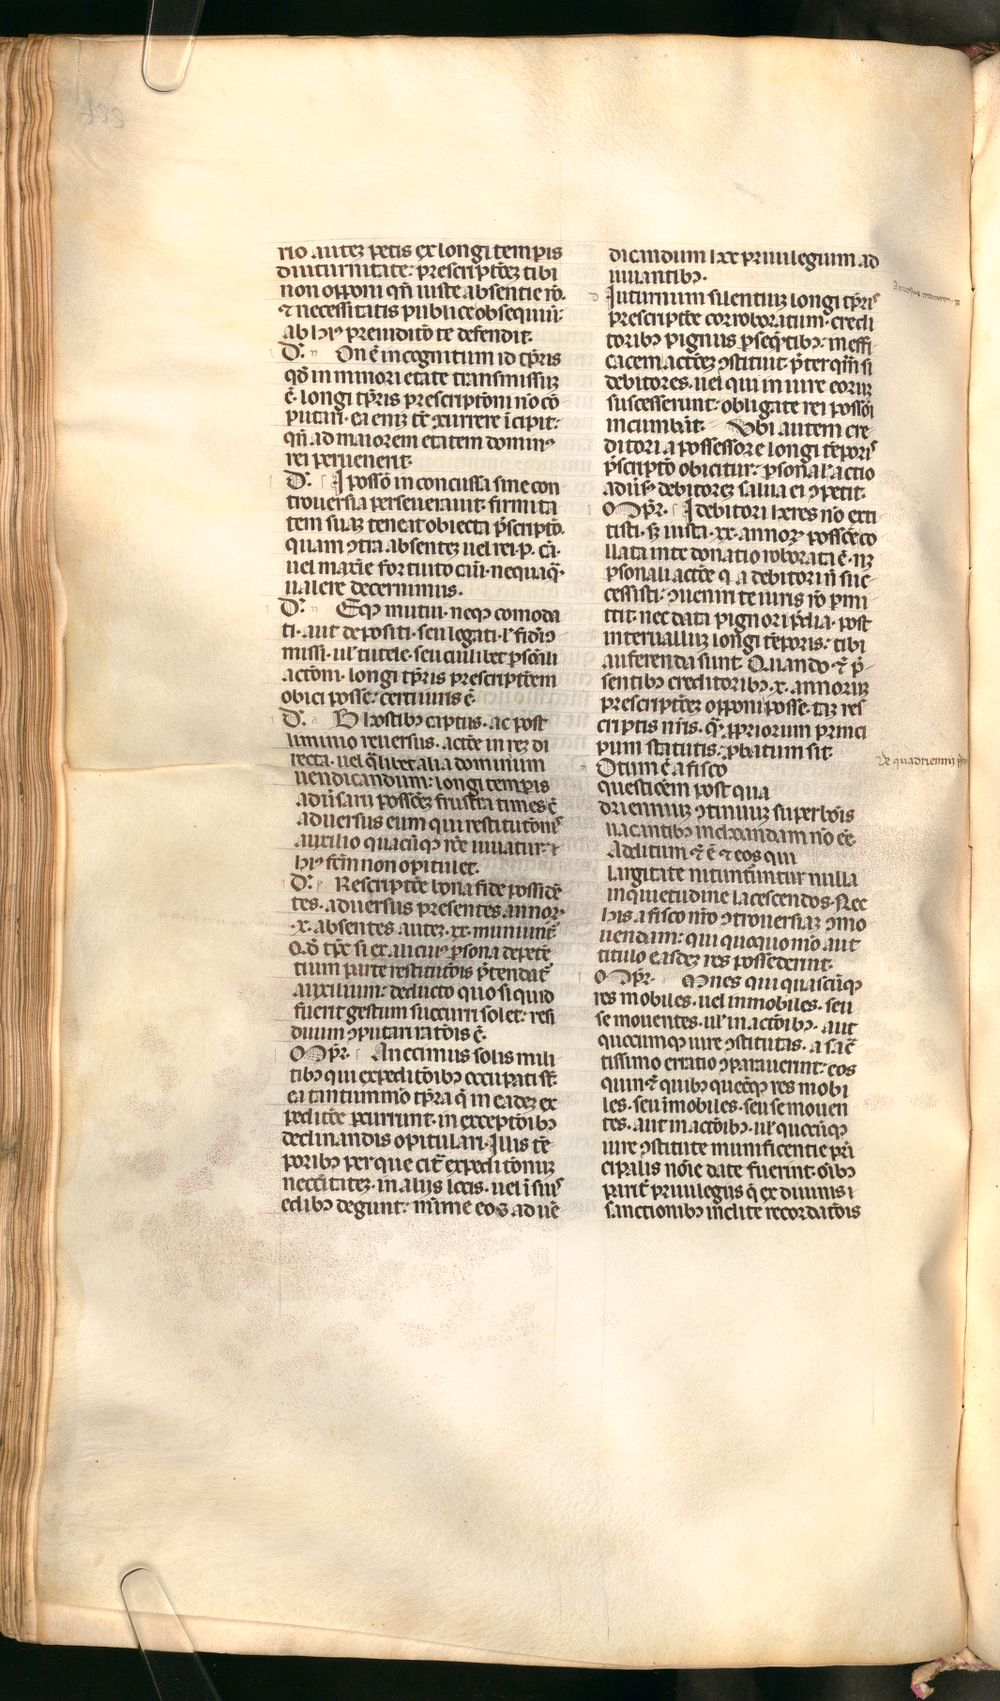 rio auteȝ petis ex longi tempis
diuturnitate: prescriptōeȝ tibi
non opponi qn̄ iuste absentie rō.
⁊ necessitatis publice obsequiū:
ab hꝰ preiudicō te defendit.
D̄. On ē incognitum id tp̄ris
qd̄ in minori etate transmissuȝ
ē. longi tp̄ris prescriptōni nō cō
putari. ea eniȝ tc̄ currere īcipit:
qn̄ ad maiorem etatem dominꝰ
rei peruenerit.
D̄. I possō inconcussa sine con
trouersia perseuerauit. firmita
tem suaȝ teneat obiecta p̄scriptō.
quam ꝯtra absenteȝ uel rei .p. cā.
uel maxīe fortuito ciui. nequaq̄.
ualere decernimus.
D̄. Eqꝫ mutui. neqꝫ comoda
ti. aut depositi. seu legati. l' fidīo
missi. ul' tutele. seu cuiilibet ꝑsonali
actōni. longi tp̄ris prescriptōem
obici posse: certi iuris ē.
D̄. B hostibꝫ captus. ac post
liminio reuersus. actōe in reȝ di
recta. uel q̄libet alia dominium
uendicandum: longi tempis
aduīsarii possōeȝ frustra times ē
aduersus eum qui restitutōnis
auxilio quacūqꝫ rōe iuuatur: ⁊
hꝰ fc̄m non opitulet.
D̄. Rescriptōe bona fide possidē
tes. aduersus presentes annoꝝ
.x. absentes auteȝ .xx. muniunt̄
Q. ō tp̄e si ex aliciꝰ ꝑsona depetē
tium parte restitutōis p̄tendat̄
auxilium: deducto quo si quid
fuerit gestum succurri solet: resi
duum ꝯputari ratōis ē.
Ōpr̄. Ancimus solis mili
tibꝫ qui expeditōibꝫ occupati st̄.
ea tantummō tp̄ra q̄ in eadeȝ ex
peditōe ꝑcurrunt. in exceptōibꝫ
declinandis opitulari. Iuis tē
poribꝫ per que cit̄ expeditōnuȝ
necc̄itateȝ. in aliis locis. uel ī suis
edibꝫ degunt: mīme eos ad uē
dicandum lxx priuilegium ad
iuuantibꝫ.
Iuturnum silentiuȝ longi tp̄ris
prescriptōe corroboratum. credi
toribꝫ pignus ꝑseq̄tibꝫ: ineffi
cacem actōeȝ ꝯstituit. p̄terqm̄ si
debitores. uel qui in iure eoruȝ
successerunt: obligate rei possōi
incumbūt. Vbi autem cre
ditori a possessore longi tēporis
p̄scriptō obicitur: ꝑsonal' actio
adūs' debitoreȝ salua ei ꝯpetit.
Ōpr̄. I debitori heres nō exti
tisti. sȝ iusta .xx. annoꝝ possōe co
llata in te donatio roborata ē. nȝ
ꝑsonali actōe q a debitori nī suc
cessisti: ꝯueniri te iuris rō ꝑmi
ttit. nec data pignori p̄dia. post
interualluȝ longi tēporis. tibi
auferenda sunt. Quando ⁊ p̄
sentibꝫ creditoribꝫ .x. annoruȝ
prescriptōeȝ opponi posse. taȝ res
criptis nr̄is. q̄ ꝓpriorum princi
pum statutis: ꝓbatum sit.
Otum ē a fisco
questiōem post qua
drienniuȝ ꝯtinuuȝ super bōis
uacantibꝫ inchoandam nō eē.
Aditum ⁊ ē ⁊ eos qui
largitate nituntur nulla
inquietudine lacescendos. Nec
his a fisco nr̄o ꝯtrouersiaȝ ꝯmo
uendam: qui quoquo mō aut
titulo easdeȝ res possederint.
Ōpr̄. Mnes qui quascūqꝫ
res mobiles. uel immobiles. seu
se mouentes. ul' in actōibꝫ. aut
quocumqꝫ iure ꝯstitutas. a sac̄
tissimo erratio ꝯparauerint: eos
quin⁊ quibꝫ quecūqꝫ res mobi
les. seu īmobiles. seu se mouen
tes. aut in actōibꝫ. ul' quocūqꝫ
iure ꝯstitute munificentie pri
cipalis nōie date fuerint. oībꝫ
parit̄ priuilegiis q̄ ex diuinis ī
sanctionibꝫ inclite recordatōis
De quadriennii p̄s